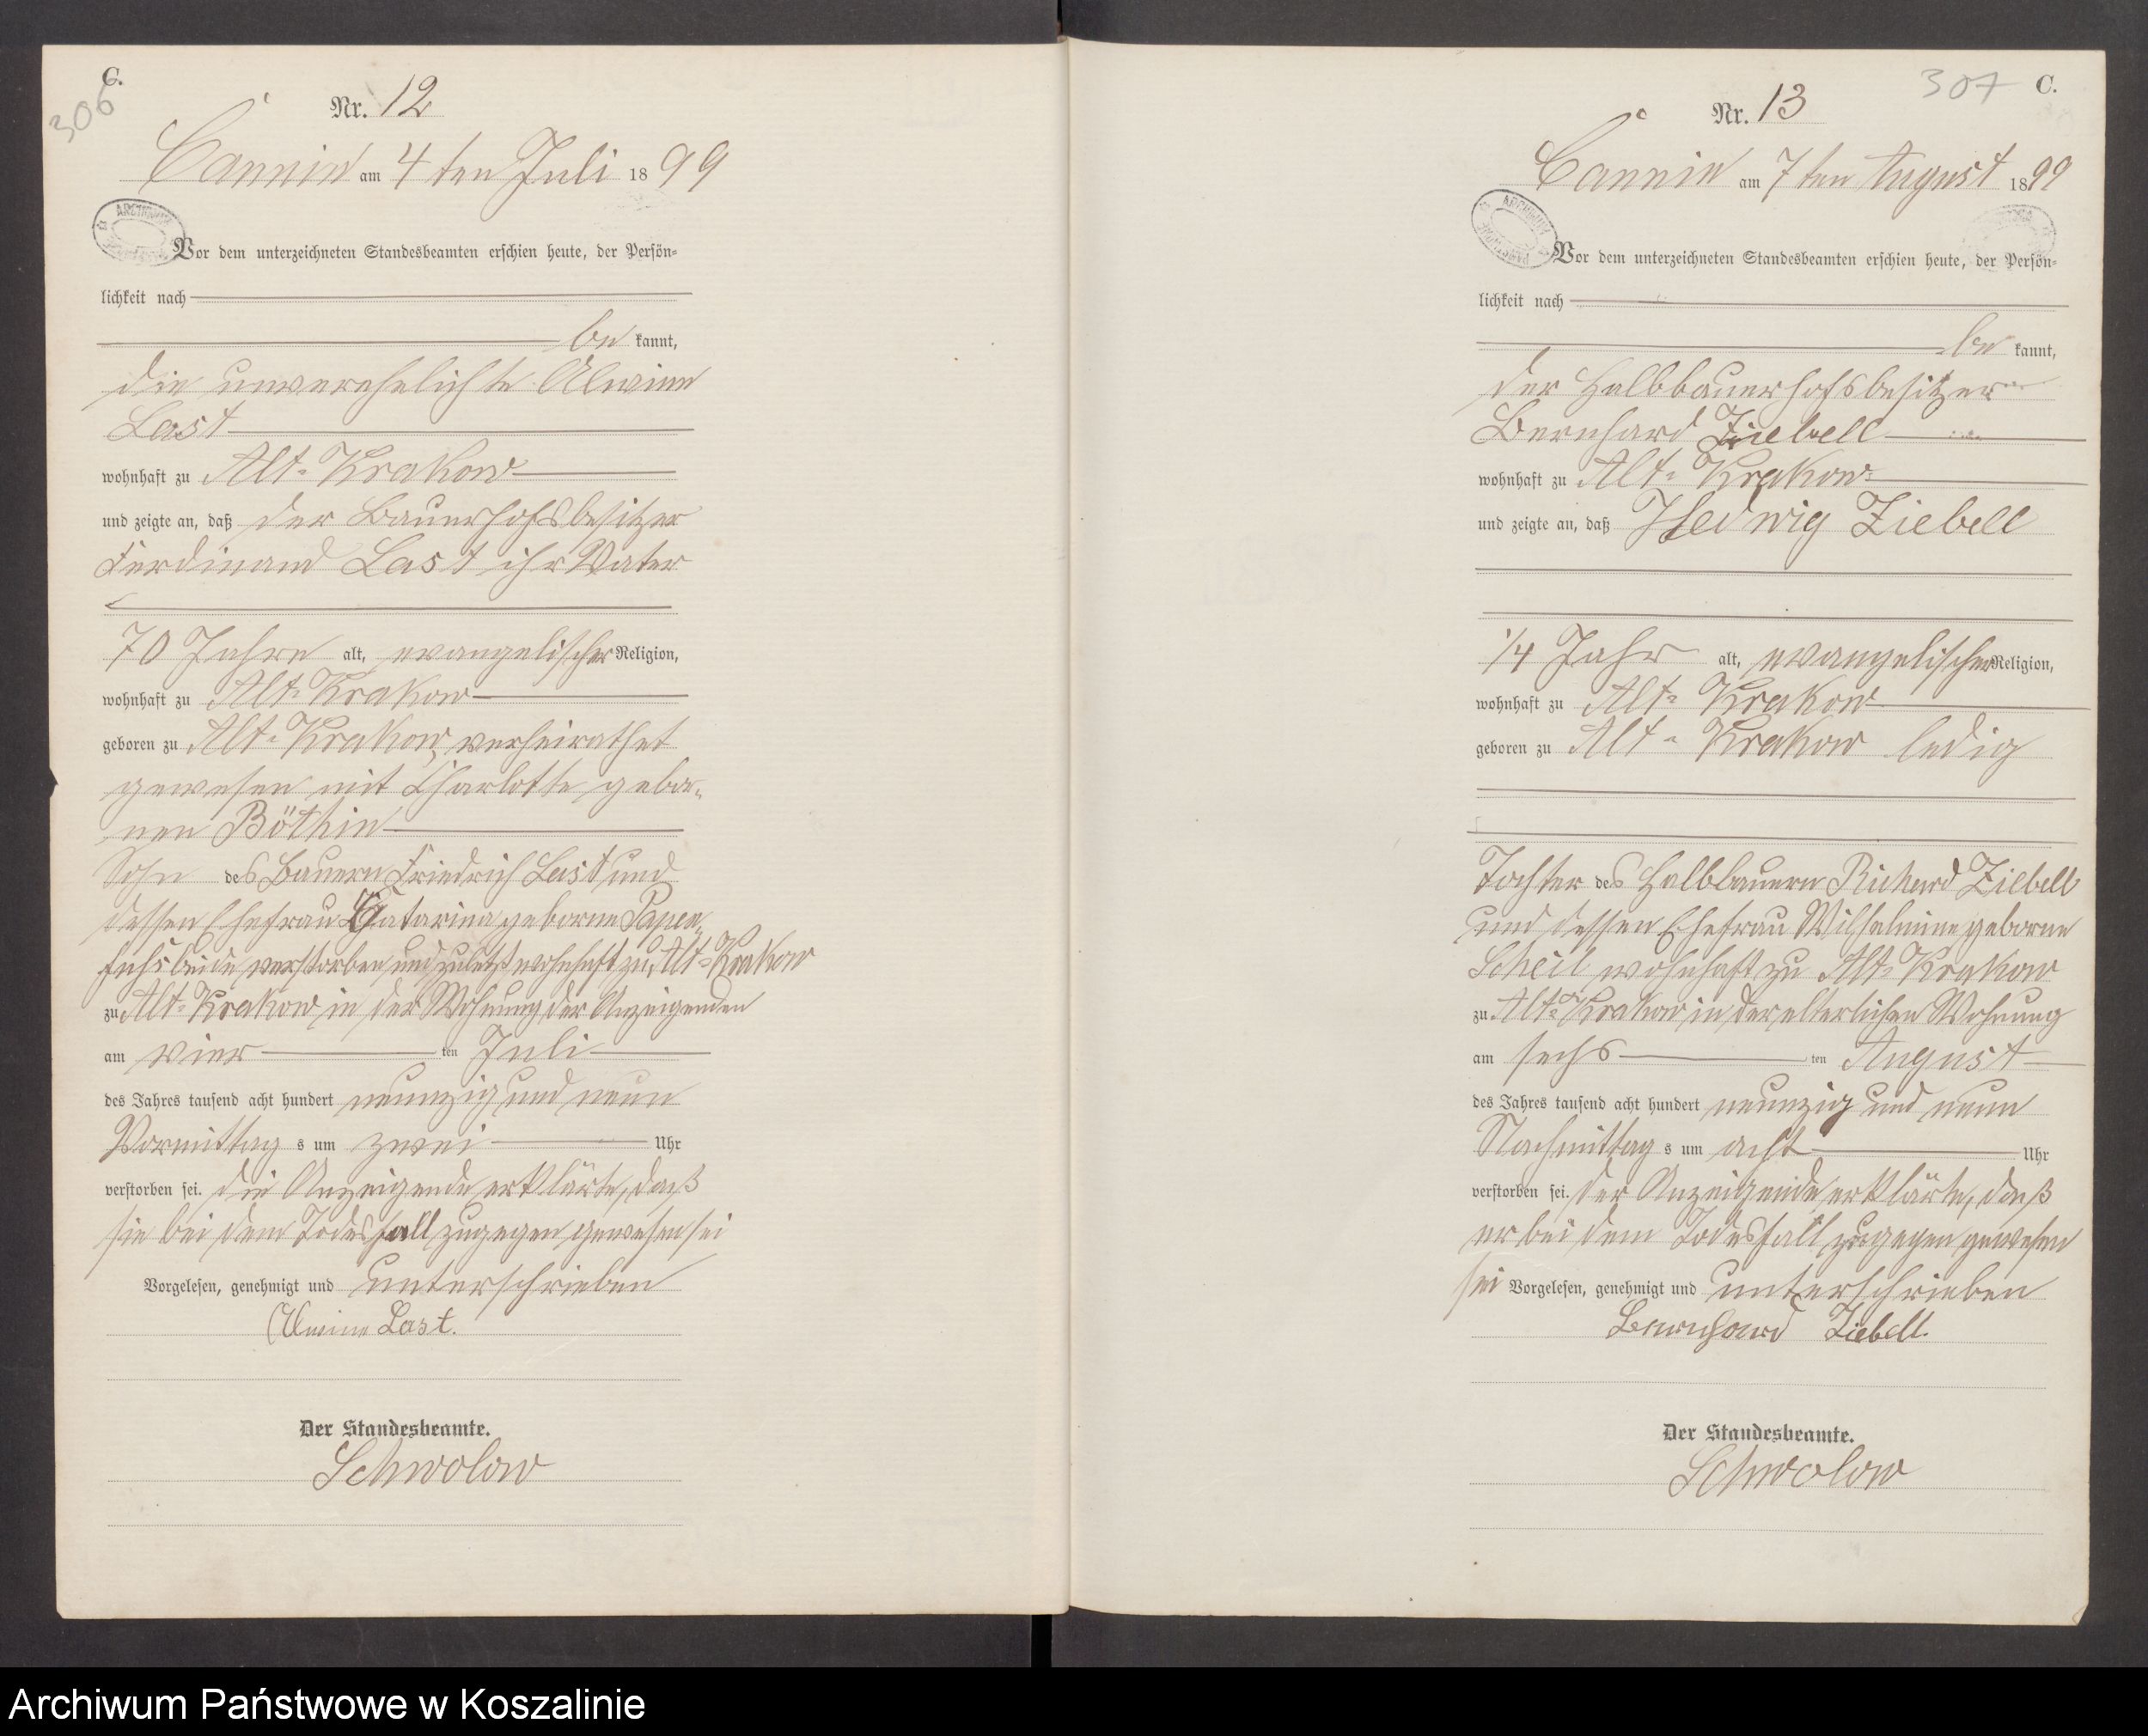 C.
306
Nr. 12
Cannin am 4ten Juli 1899
ARCHIWUM
Vor dem unterzeichneten Standesbeamten erschien heute, der Persön-
lichkeit nach
be kannt,
die unverehelichte Alwine
Last
wohnhaft zu Alt-Krakow
und zeigte an, daß der Bauerhofsbesitzer
Ferdinand Last ihr Vater
70 Jahre alt, evangelischer Religion,
wohnhaft zu Alt-Krakow
geboren zu Alt-Krakow, verheirathet
gewesen mit Charlotte gebo-
nen Böthin
Sohn des Bauern Friedrich Last und
dessen Ehefrau Catarina geborne Papen-
fuhs beide verstorben und zuletzt wohnhaft zu Alt-Krakow
zu Alt-Krakow in der Wohnung der Anzeigenden
am vier ten Juli
des Jahres tausend acht hundert neunzig und neun
Vormittag s um zwei Uhr
verstorben sei. die Anzeigende erklärte, daß
sie bei dem Todesfall zugegen gewesen sei
Vorgelesen, genehmigt und unterschrieben
Alwine Last.
Der Standesbeamte.
Schwolow
307 C.
Nr. 13
Cannin am 7ten August 1899
ARCHIWUM
Vor dem unterzeichneten Standesbeamten erschien heute, der Persön-
lichkeit nach
be kannt,
der Halbbauerhofsbesitzer
Bernhard Ziebell
wohnhaft zu Alt-Krakow
und zeigte an, daß Hedwig Ziebell
1/4 Jahr alt, evangelischer Religion,
wohnhaft zu Alt-Krakow
geboren zu Alt-Krakow ledig
Tochter des Halbbauern Richard Ziebell
und dessen Ehefrau Wilhelmine geborne
Scheil wohnhaft zu Alt-Krakow
zu Alt-Krakow in der elterlichen Wohnung
am sechs ten August
des Jahres tausend acht hundert neunzig und neun
Nachmittag s um acht Uhr
verstorben sei. der Anzeigende erklärte, daß
er bei dem Todesfall zugegen gewesen
sei Vorgelesen, genehmigt und unterschrieben
Bernhard Ziebell.
Der Standesbeamte.
Schwolow
Archiwum Państwowe w Koszalinie